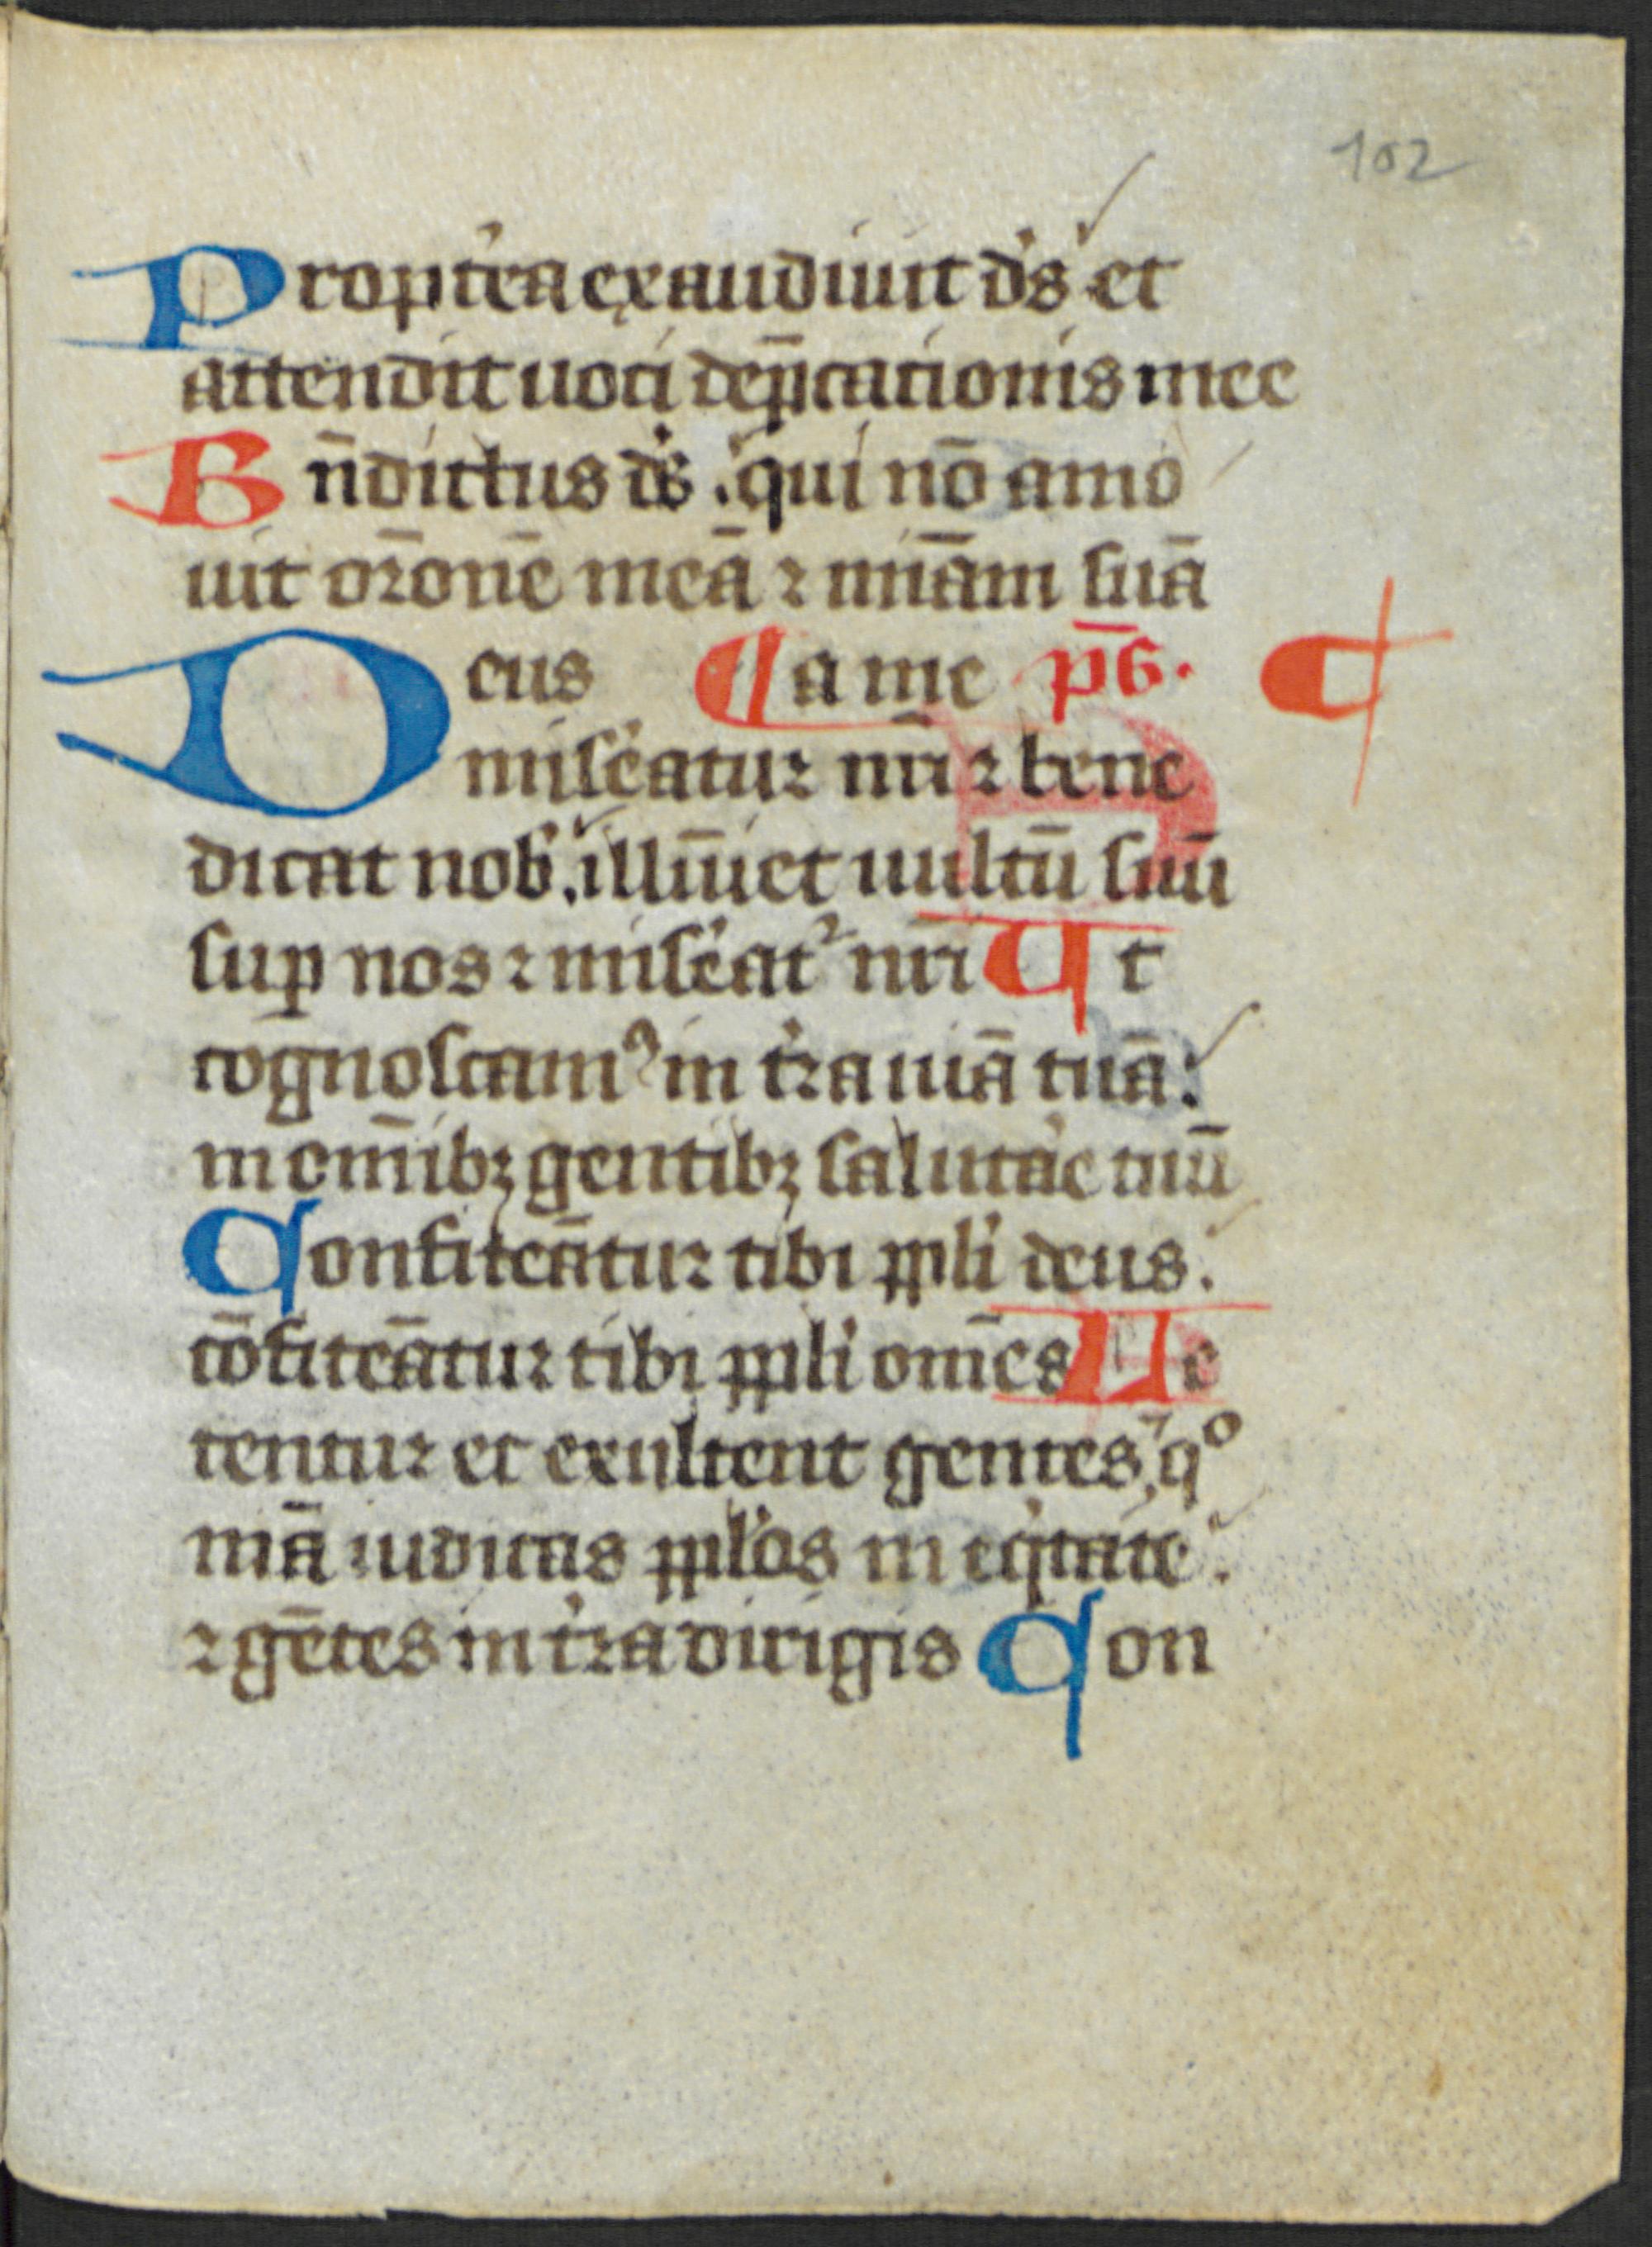 102
Propt̾ea exaudiuit ds̾ et
attendit uoci dep̄cationis mee
Bn̄dictus ds̾ . qui nō amo
uit or̄onē meā ⁊ mīam suā
Deus ¶ a me pͫ̄s.
mise̾atur nr̄i ⁊ bene
dicat nob̾ . illūīet uultū suū
suꝑ nos ⁊ mise̾at᷑ nr̄i Ut
coḡnoscamꝰ in t̾ra uiā tuā :
in om̄ibꝫ gentibꝫ saluta̾e tuū
Confiteātur tibi ppl̾i deus .
cōfiteātur tibi ppl̾i om̄es Le
tentur et exultent gentes . qͦ
niā iudicas ppl̾os in eq̾tate .
⁊ gētes in t̾ra dirigis Con